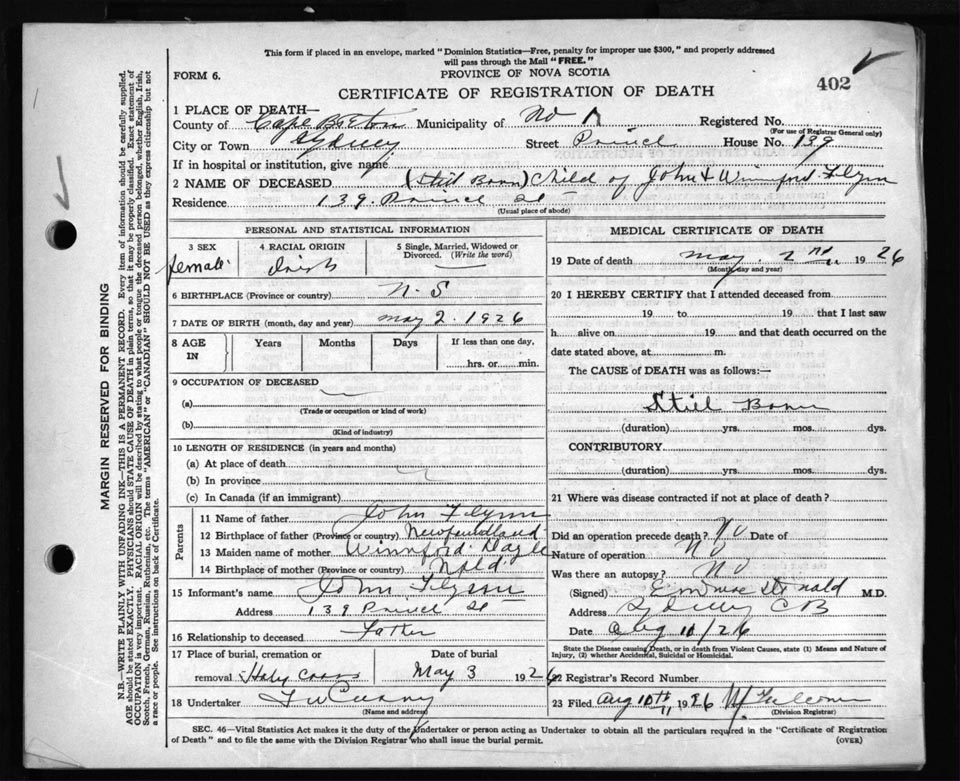 This form if placed in an envelope, marked "Dominion Statistics—Free, penalty for improper use $300," and properly addressed
will pass through the Mail "FREE."
FORM 6.
PROVINCE OF NOVA SCOTIA
402
CERTIFICATE OF REGISTRATION OF DEATH
1 PLACE OF DEATH—
County of Cape Breton Municipality of No 1 Registered No.
(For use of Registrar General only)
City or Town Sydney Street Prince House No. 139
If in hospital or institution, give name
2 NAME OF DECEASED (Still Born) Child of John & Winnford Flynn
Residence 139 Prince St
(Usual place of abode)
PERSONAL AND STATISTICAL INFORMATION
3 SEX
female
4 RACIAL ORIGIN
Irish
5 Single, Married, Widowed or
Divorced. (Write the word)
6 BIRTHPLACE (Province or country) N.S
7 DATE OF BIRTH (month, day and year) May 2. 1926
8 AGE
IN
Years
Months
Days
If less than one day,
hrs. or min.
9 OCCUPATION OF DECEASED
(a)
(Trade or occupation or kind of work)
(b)
(Kind of industry)
10 LENGTH OF RESIDENCE (in years and months)
(a) At place of death
(b) In province
(c) In Canada (if an immigrant)
Parents
11 Name of father John Flynn
12 Birthplace of father (Province or country) Newfoundland
13 Maiden name of mother Winnford
14 Birthplace of mother (Province or country) Nfld.
15 Informant's name John Flynn
Address 139 Prince St
16 Relationship to deceased Father
17 Place of burial, cremation or
removal Holy Cross
Date of burial
May 3 1926
18 Undertaker
(Name and address)
MEDICAL CERTIFICATE OF DEATH
19 Date of death May. 2nd 1926
(Month, day and year)
20 I HEREBY CERTIFY that I attended deceased from
19 to 19 that I last saw
h alive on 19 and that death occurred on the
date stated above, at m.
The CAUSE of DEATH was as follows:—
Still Born
(duration) yrs. mos. dys.
CONTRIBUTORY
(duration) yrs. mos. dys.
21 Where was disease contracted if not at place of death?
Did an operation precede death? No Date of
Nature of operation No
Was there an autopsy? No
(Signed) M.D.
Address Sydney CB
Date Aug 10/26
State the Disease causing Death, or in death from Violent Causes, state (1) Means and Nature of
Injury, (2) whether Accidental, Suicidal or Homicidal.
22 Registrar's Record Number
23 Filed Aug 1926
(Division Registrar)
SEC. 46—Vital Statistics Act makes it the duty of the Undertaker or person acting as Undertaker to obtain all the particulars required in the "Certificate of Registration
of Death" and to file the same with the Division Registrar who shall issue the burial permit.
(OVER)
MARGIN RESERVED FOR BINDING
N.B.—WRITE PLAINLY WITH UNFADING INK—THIS IS A PERMANENT RECORD. Every item of information should be carefully supplied.
AGE should be stated EXACTLY. PHYSICIANS should STATE CAUSE OF DEATH in plain terms, so that it may be properly classified. Exact statement of
OCCUPATION is very important. RACIAL ORIGIN will be described by stating to what people or tongue the deceased person belonged, whether English, Irish,
Scotch, French, German, Russian, Ruthenian, etc. The terms "AMERICAN" or "CANADIAN" SHOULD NOT BE USED as they express citizenship but not
a race or people. See instructions on back of Certificate.